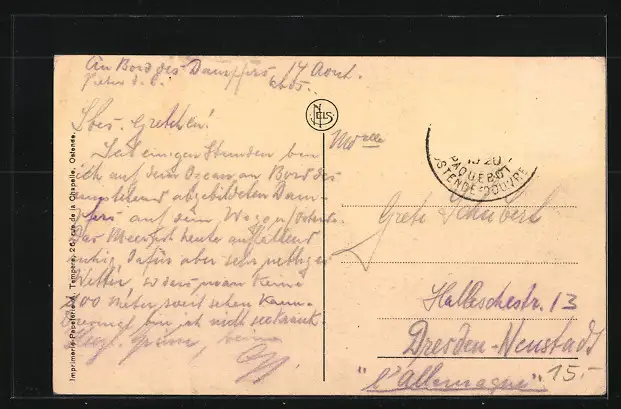 An Bord des Dampfers 17 Aout.
Pieter d. C.
Lbes. Gretchen!
Seit einigen Stunden bin
ich auf dem Ocean an Bord des
umstehend abgebildeten Dam-
pfers auf dem Wege
Das Meer ist heute auffallend
ruhig dafür aber sehr
Wetter, sodass man keine
200 Meter weit sehen kann.
bin ich nicht seekrank.
Herzl. Grüsse,
NELS
Mdelle
PAQUEBOT
OSTENDE-DOUVRE
Grete Schubert
Halleschestr. 13
Dresden-Neustadt
"l'Allemagne"
15.-
Imprimerie-Papeterie A. Tempère, 26, rue de la Chapelle, Ostende.